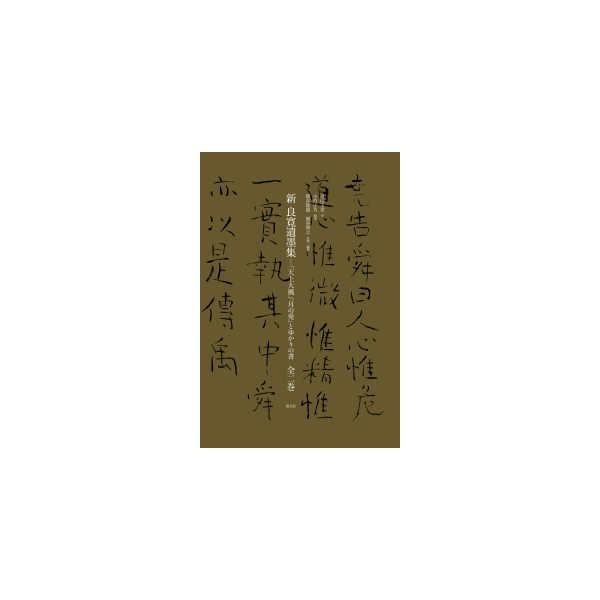 堯告舜曰人心惟危
道心惟微惟精惟
一實執其中舜
亦以是傳禹
新 良寛遺墨集
「天上大風」「月の兎」とゆかりの書
全二巻